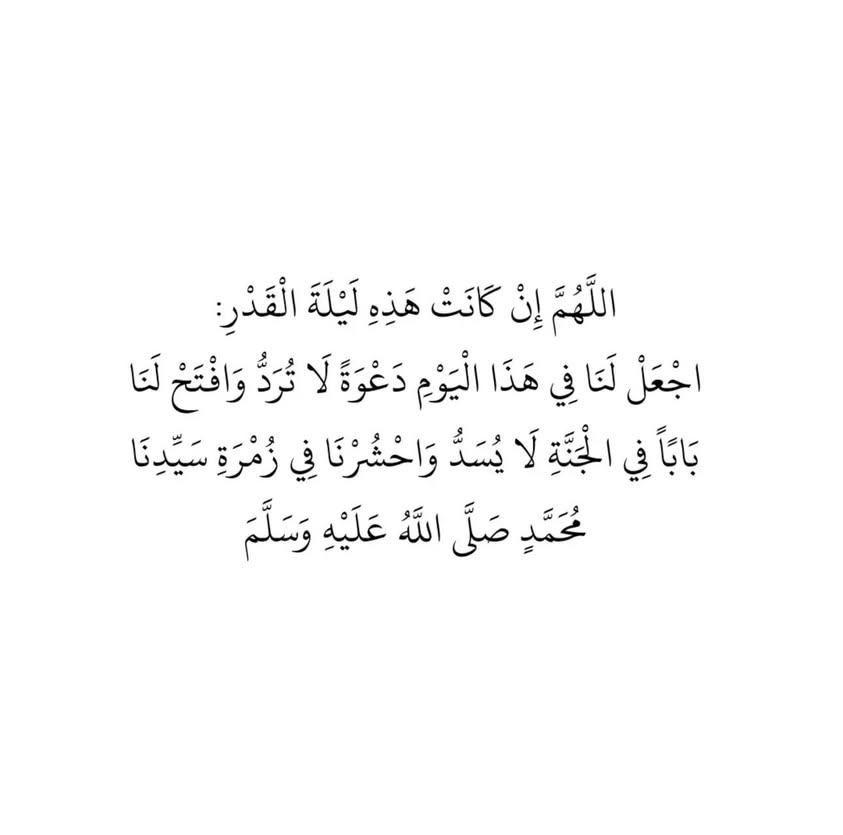 اللَّهُمَّ إِنْ كَانَتْ هَذِهِ لَيْلَةَ الْقَدْرِ:
اجْعَلْ لَنَا فِي هَذَا الْيَوْمِ دَعْوَةً لَا تُرَدُّ وَافْتَحْ لَنَا
بَابًاً فِي الْجَنَّةِ لَا يُسَدُّ وَاحْشُرْنَا فِي زُمْرَةِ سَيِّدِنَا
مُحَمَّدٍ صَلَّى اللَّهُ عَلَيْهِ وَسَلَّمَ